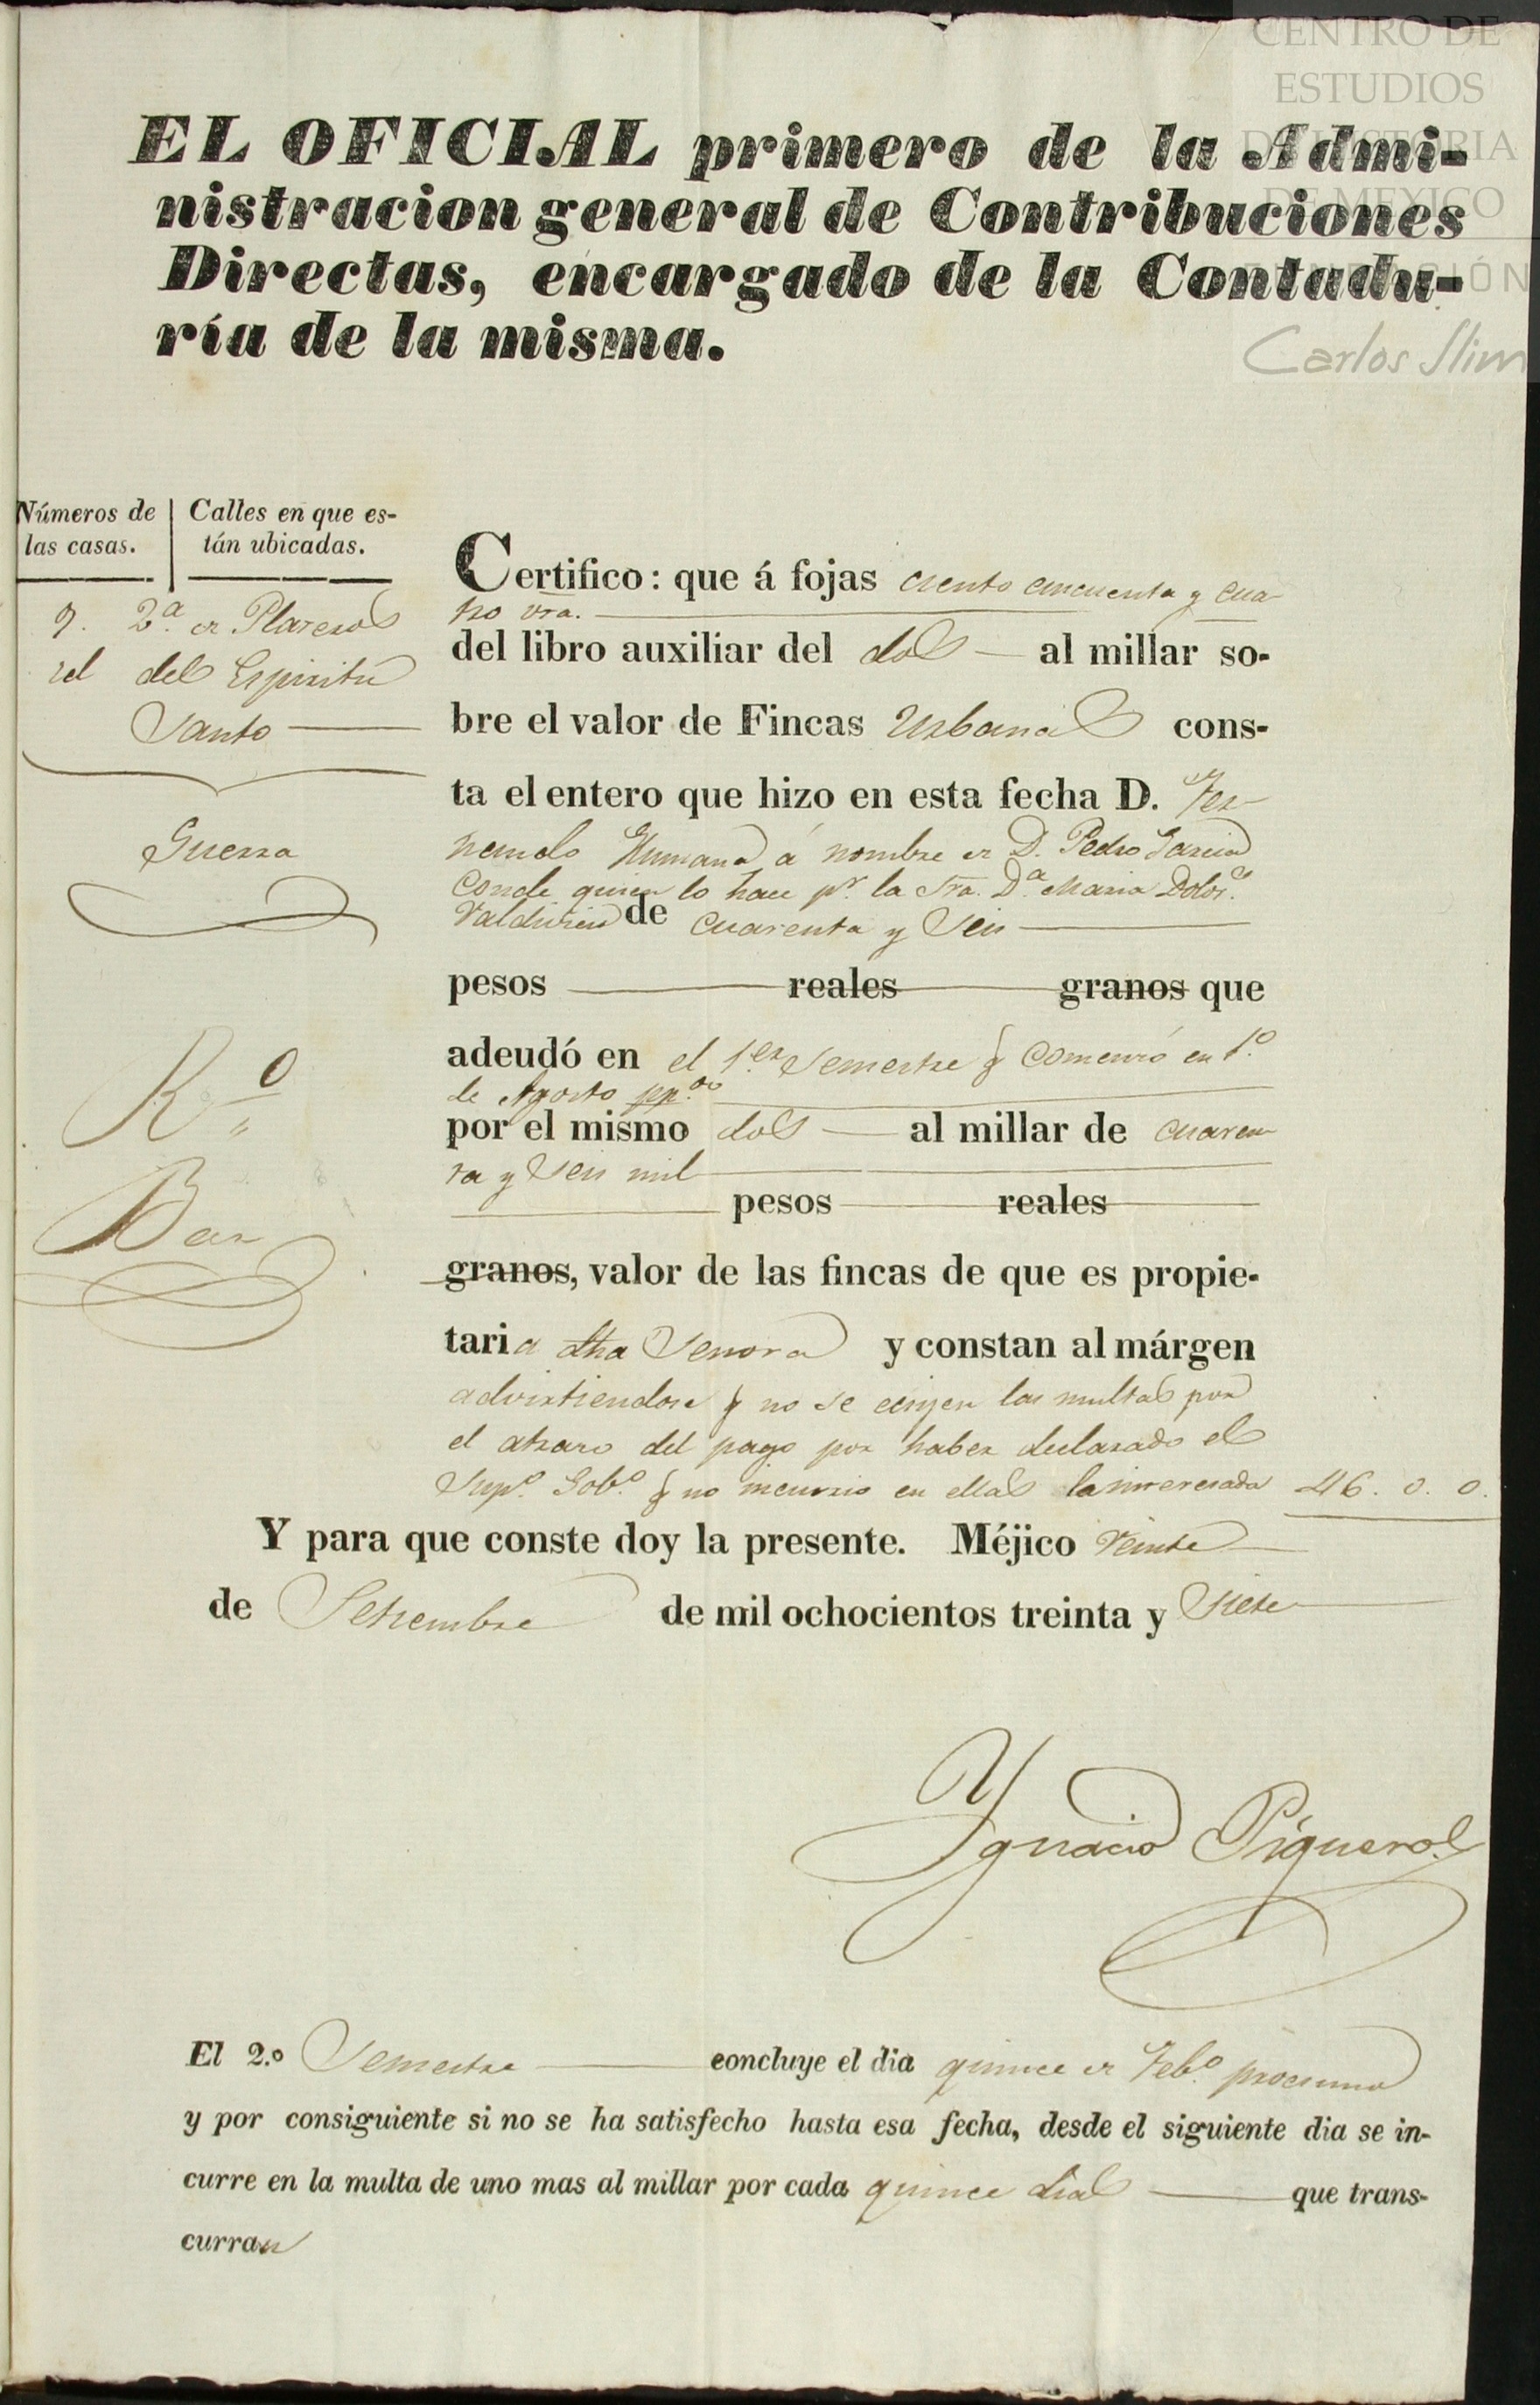 CENTRO DE
ESTUDIOS
DE HISTORIA
DE MEXICO
Carlos Slim
EL OFICIAL primero de la Admi-
nistracion general de Contribuciones
Directas, encargado de la Contadu-
ría de la misma.
Números de las casas. | Calles en que es-
tán ubicadas.
9. 2.ª de Plateros
id del Espiritu
Santo
Guerra
R.º
Bar
Certifico: que á fojas ciento cincuenta y cua
tro vta.
del libro auxiliar del dos al millar so-
bre el valor de Fincas Urbanas cons-
ta el entero que hizo en esta fecha D. Fer
nando Humana á nombre de D. Pedro Garcia
Conde quien lo hace pr. la Sra. D.ª Maria Dolores
Valdivieso de cuarenta y seis
pesos reales granos que
adeudó en el 1.er Semestre q comenzó en 1.º
de Agosto pp.do
por el mismo dos al millar de cuaren
ta y seis mil
pesos reales
granos, valor de las fincas de que es propie-
taria dha Señora y constan al márgen
advirtiendose q no se exijen las multas por
el atraso del pago por haber declarado el
Sup.º Gob.º q no incurrio en ellas la interesada 46. 0. 0.
Y para que conste doy la presente. Méjico veinte
de Setiembre de mil ochocientos treinta y siete
Ygnacio Piquero
El 2.º Semestre concluye el dia quince de Feb.º procsimo
y por consiguiente si no se ha satisfecho hasta esa fecha, desde el siguiente dia se in-
curre en la multa de uno mas al millar por cada quince dias que trans-
curran